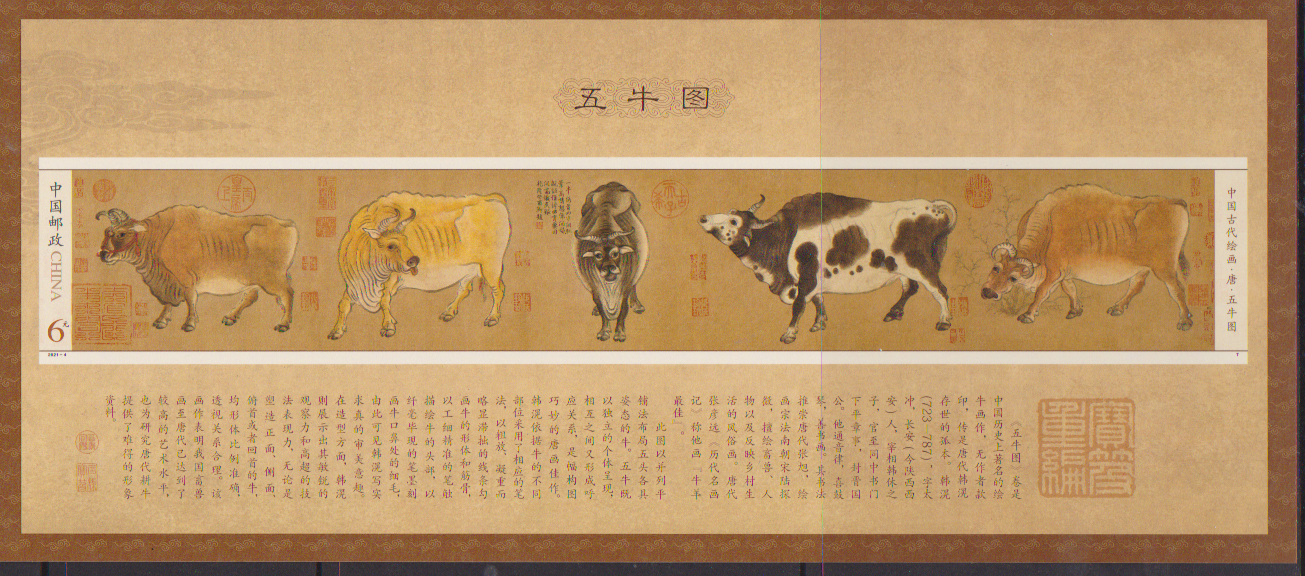 五牛图
中国邮政 CHINA
6元
2021-4
T
中国古代绘画·唐·五牛图
《五牛图》卷是
中国历史上著名的绘
牛画作，无作者款
印，传是唐代韩滉
存世的孤本。韩滉
(723—787)，字太
冲，长安（今陕西西
安）人，宰相韩休之
子，官至同中书门
下平章事，封晋国
公。他通音律，喜鼓
琴，善书画。其书法
推崇唐代张旭，绘
画宗法南朝宋陆探
微，擅绘畜兽、人
物以及反映乡村生
活的风俗画。唐代
张彦远《历代名画
记》称他画“牛羊
最佳”。
此图以并列平
铺法布局五头各具
姿态的牛。五牛既
以独立的个体呈现，
相互之间又形成呼
应关系，是幅构图
巧妙的唐画佳作。
韩滉依据牛的不同
部位采用了相应的笔
法，以粗放、凝重而
略显滞拙的线条勾
画牛的形体和筋骨，
以工细精准的笔触
描绘牛的头部，以
纤毫毕现的笔墨刻
画牛口鼻处的细毛，
由此可见韩滉写实
求真的审美意趣。
在造型方面，韩滉
则展示出其敏锐的
观察力和高超的技
法表现力，无论是
塑造正面、侧面、
俯首或者回首的牛，
均形体比例准确，
透视关系合理。该
画作表明我国畜兽
画至唐代已达到了
较高的艺术水平，
也为研究唐代耕牛
提供了难得的形象
资料。